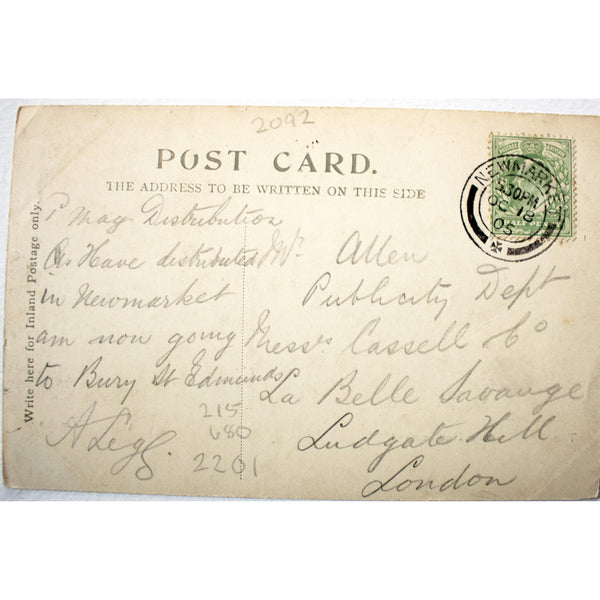 2092
POST CARD.
THE ADDRESS TO BE WRITTEN ON THIS SIDE
Write here for Inland Postage only.
P Mag Distribution
Have distributed
in Newmarket
am now going
to Bury St Edmunds
A Legg.
215
680
2201
Mr. Allen
Publicity Dept
Messrs Cassell & Co
La Belle Savauge
Ludgate Hill
London
NEWMARKET
5.30PM
OC 18
05